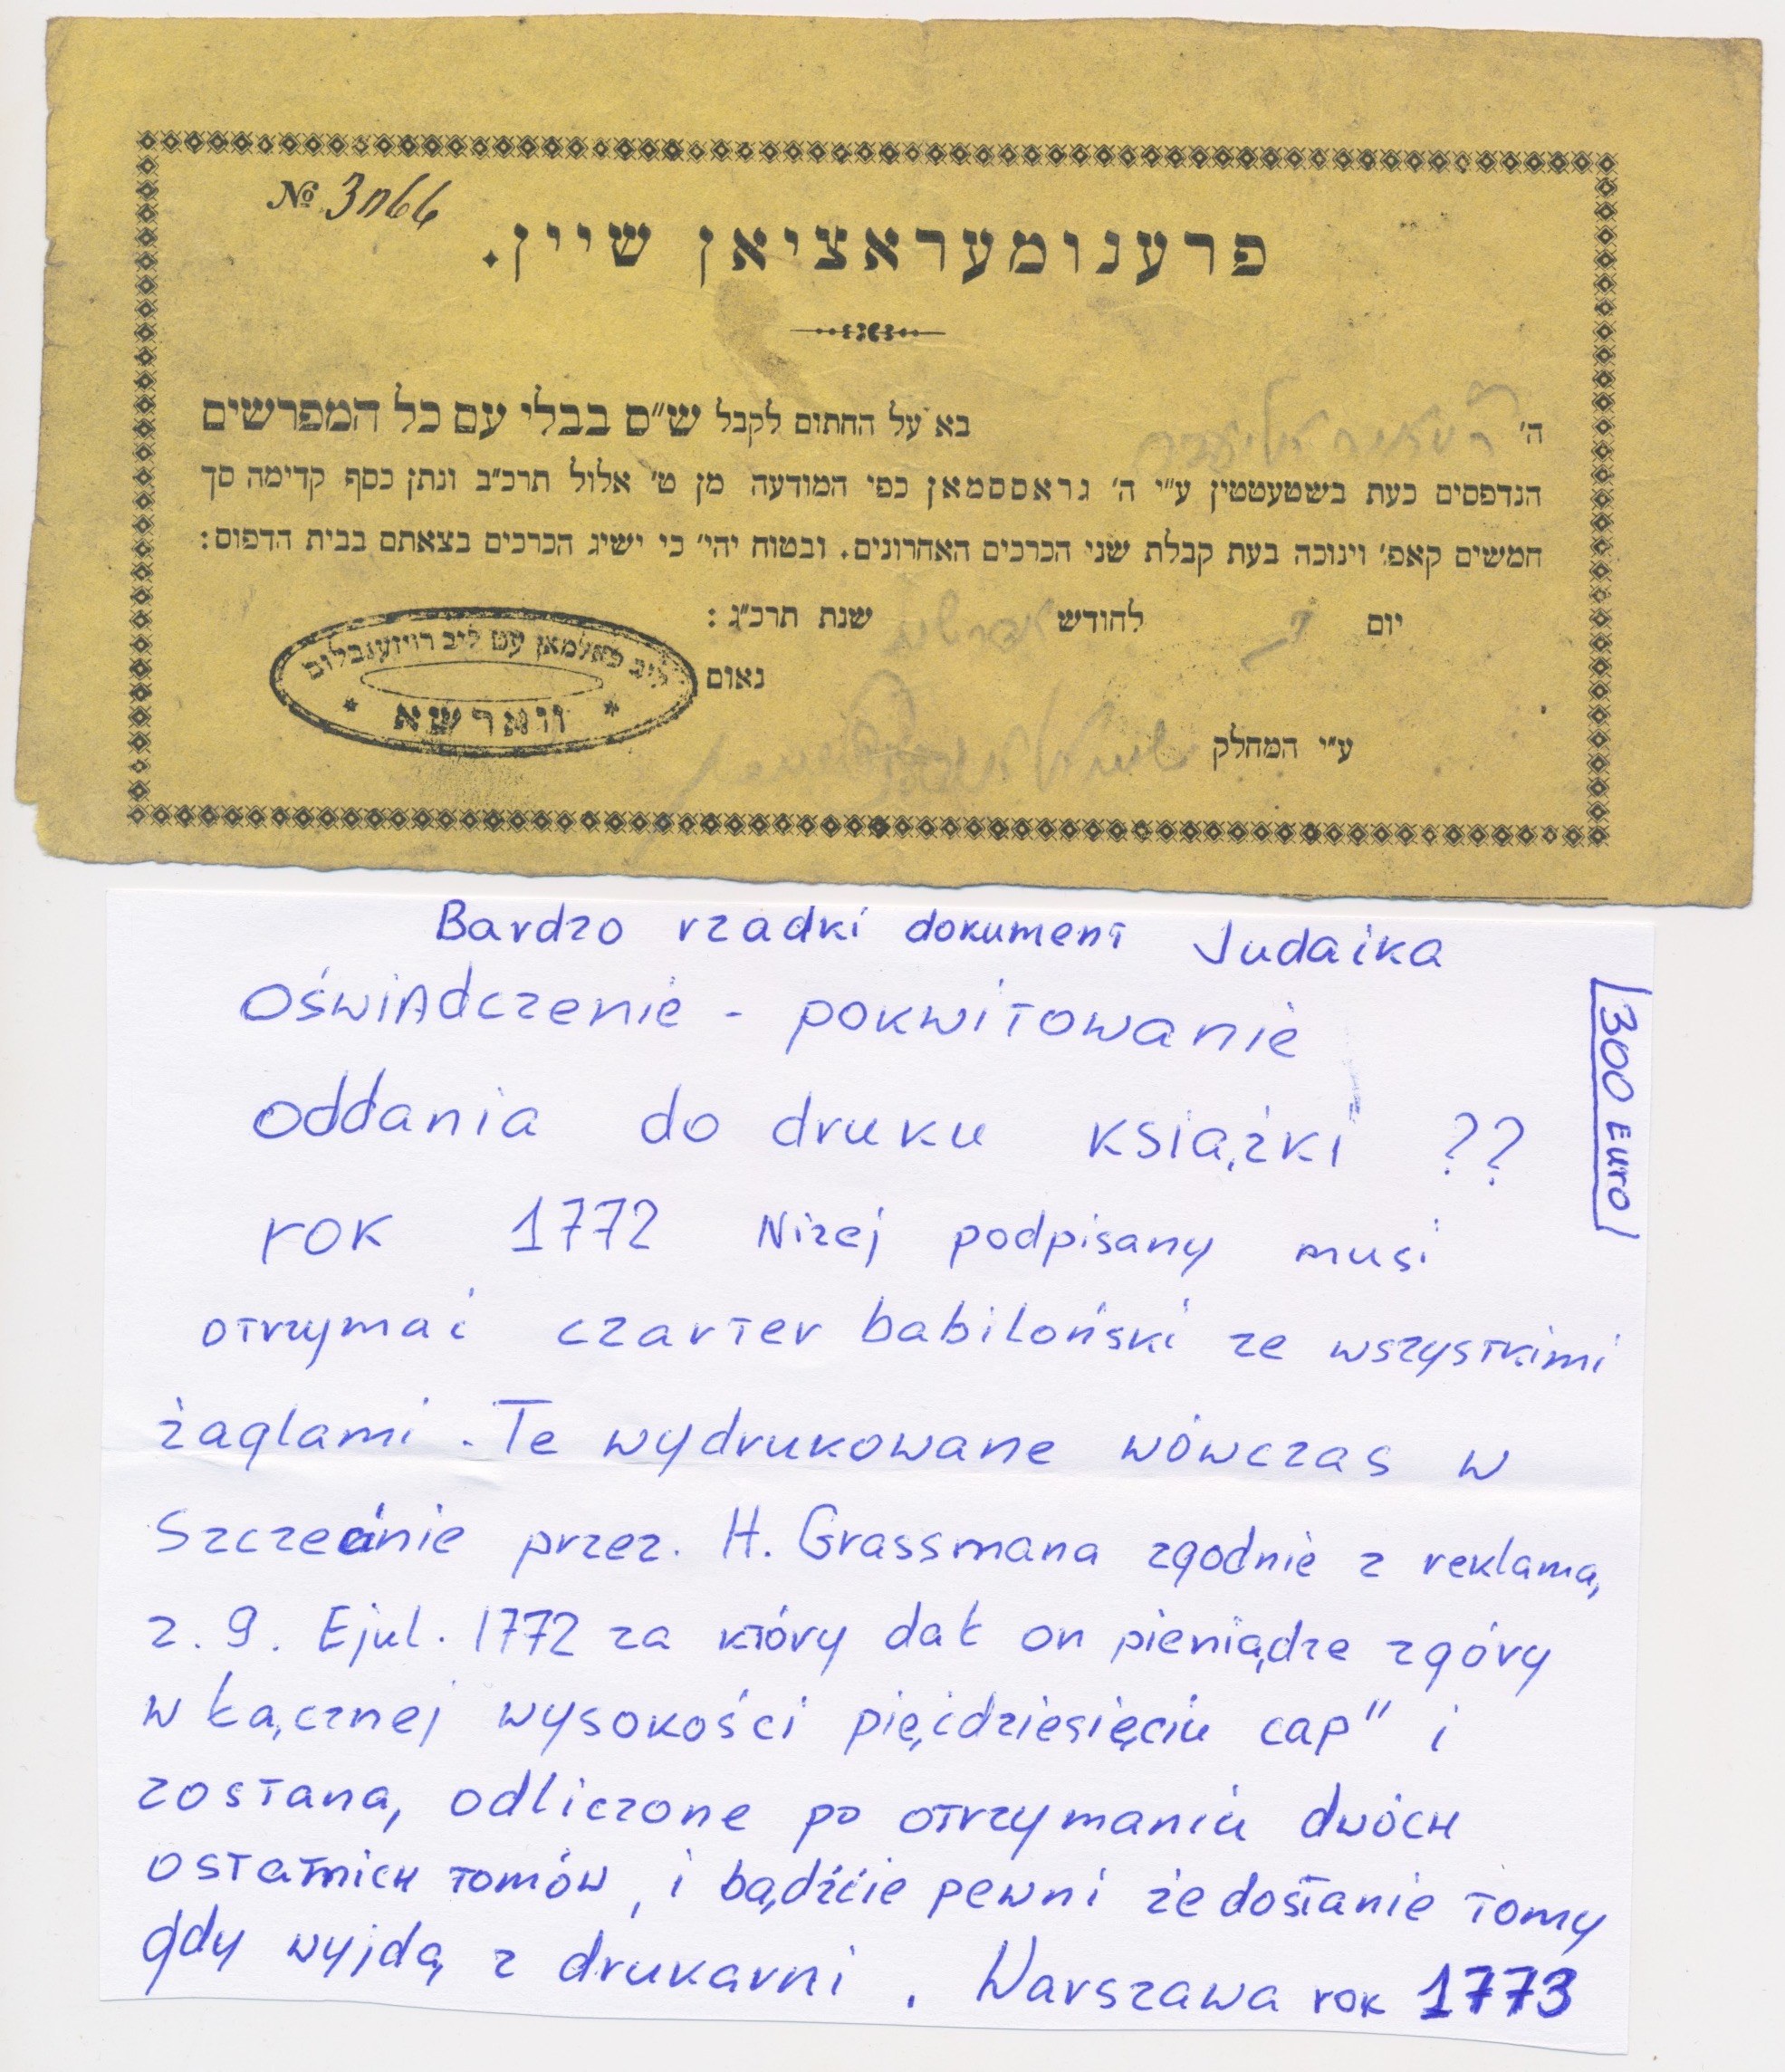 № 3066
פרענומעראציאן שיין.
ה' בא על החתום לקבל ש"ס בבלי עם כל המפרשים
הנדפסים כעת בשטעטטין ע"י ה' גראססמאן כפי המודעה מן ט' אלול תרכ"ב ונתן כסף קדימה סך
חמשים קאפ' וינוכה בעת קבלת שני הכרכים האחרונים. ובטוח יהי' כי ישיג הכרכים בצאתם בבית הדפוס:
יום לחודש שנת תרכ"ג:
נאום
ליב
ווארשא
ע"י המחלק
Bardzo rzadki dokument Judaika
Oświadczenie - pokwitowanie
oddania do druku książki ??
300 Euro
rok 1772 Niżej podpisany musi
otrzymać czarter babiloński ze wszystkimi
żaglami. Te wydrukowane wówczas w
Szczecinie przez. H. Grassmana zgodnie z reklamą
z. 9. Ejul. 1772 za który dał on pieniądze zgóry
w łącznej wysokości pięćdziesięciu cap" i
zostaną odliczone po otrzymaniu dwóch
ostatnich tomów, i bądźcie pewni że dostanie tomy
gdy wyjdą z drukarni. Warszawa rok 1773